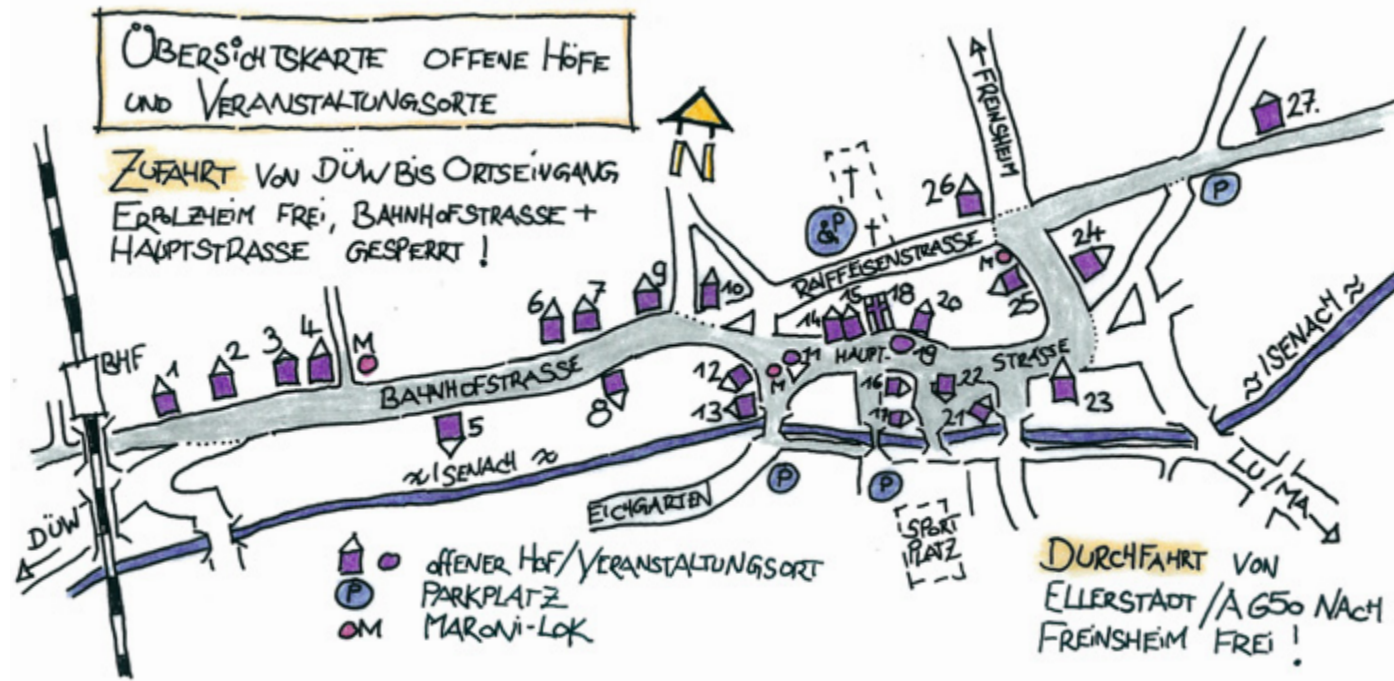 ÜBERSiCHTSKARTE OFFENE HöFE
UND VERANSTALTUNGSORTE
ZUFAHRT VON DÜW BiS ORTSEiNGANG
ERPOLZHEiM FREi, BAHNHOFSTRASSE +
HAUPTSTRASSE GESPERRT !
N
FREiNSHEiM
27.
P
26
P
RAiFFEiSENSTRASSE
24
M
25
9
10
6
7
15
18
14
20
4
3
2
1
M
BHF
BAHNHOFSTRASSE
11
HAUPT-
19
STRASSE
≈ ISENACH ≈
12
M
16
22
13
17
21
23
8
5
≈ ISENACH ≈
EiCHGARTEN
P
P
SPORT
PLATZ
LU/MA
DÜW
OFFENER HOF/VERANSTALTUNGSORT
P PARKPLATZ
M MARONi-LOK
DURCHFAHRT VON
ELLERSTADT/A650 NACH
FREiNSHEiM FREi !